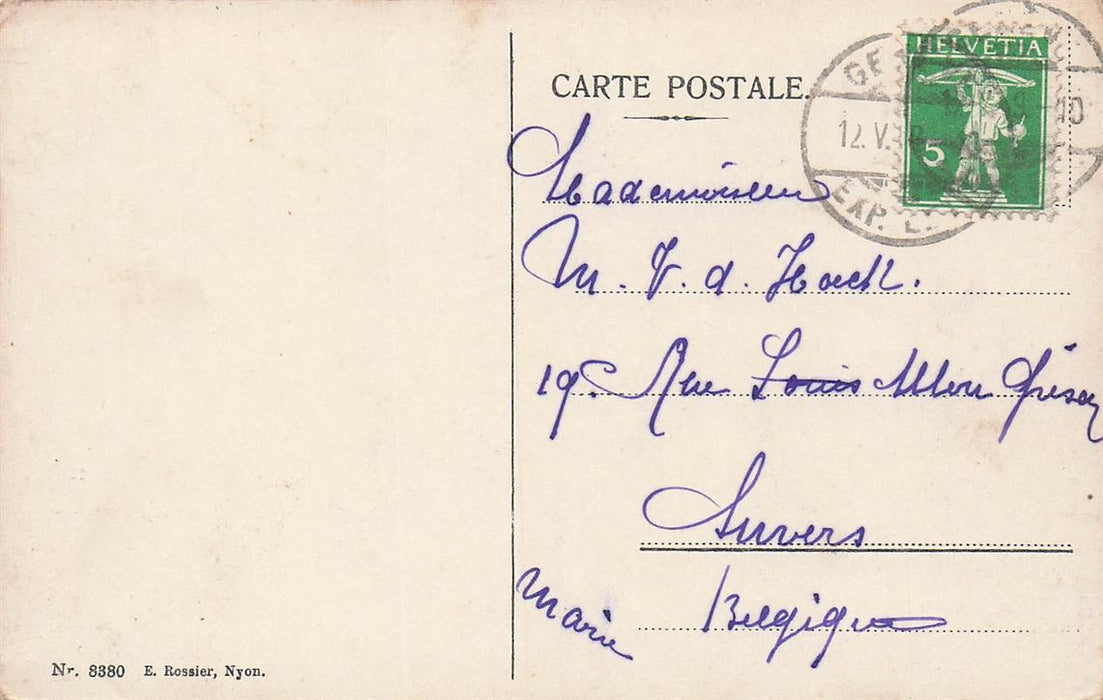 CARTE POSTALE.
HELVETIA
5
12. V.
EXP. L.
10
Mademoiselle
M. V. d. Hoeck.
19 Rue Louis
Anvers
Belgique
Marie
Nr. 8380 E. Rossier, Nyon.